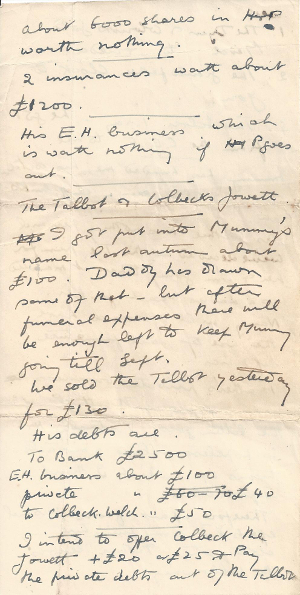 about 6000 shares in
worth nothing.
2 insurances worth about
£1200.
His E.H. business which
is worth nothing if P goes
out.
The Talbot & Colbecks Jowett.
I got put into Mummy's
name last autumn about
£100. Daddy has drawn
some of that - but after
funeral expenses there will
be enough left to keep Mummy
going till Sept.
We sold the Talbot yesterday
for £130.
His debts are.
To Bank £2500
E.H. business about £100
private " £60 - 70 £40
to Colbeck. Welch. " £50
I intend to offer Colbeck the
Jowett + £20 or £25 & Pay
the private debts out of the Talbot